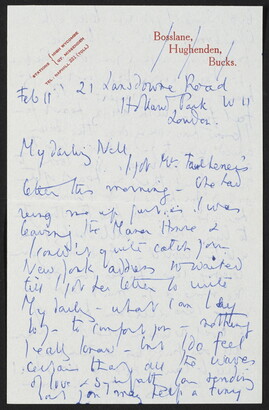 Bosslane,
Hughenden,
Bucks.
STATIONS HIGH WYCOMBE
GT. MISSENDEN
TEL: NAPHILL 221 (TOLL)
Feb 11th 21 Lansdowne Road
Holland Park W 11
London.
My darling Nell
I got Mrs
letter this morning – She had
rung me up just as I was
leaving the Manor House &
I couldn't quite catch your
New York address so waited
till I got her letter to write
My darling – what can I say
to – to comfort you – nothing
I really know – but I do feel
certain that all the waves
of love & sympathy I am sending
out you may help a tiny